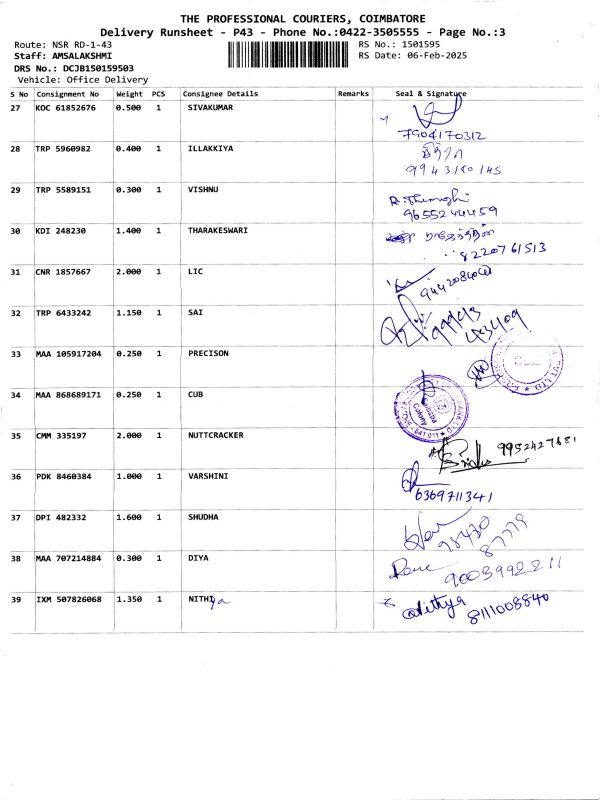 THE PROFESSIONAL COURIERS, COIMBATORE
Delivery Runsheet - P43 - Phone No.:0422-3505555 - Page No.:3
Route: NSR RD-1-43 RS No.: 1501595
Staff: AMSALAKSHMI RS Date: 06-Feb-2025
DRS No.: DCJB150159503
Vehicle: Office Delivery
S No Consignment No Weight PCS Consignee Details Remarks Seal & Signature
27 KOC 61852676 0.500 1 SIVAKUMAR
7904170312
28 TRP 5960982 0.400 1 ILLAKKIYA
9943180145
29 TRP 5589151 0.300 1 VISHNU
9655244459
30 KDI 248230 1.400 1 THARAKESWARI
8220761513
31 CNR 1857667 2.000 1 LIC
32 TRP 6433242 1.150 1 SAI
33 MAA 105917204 0.250 1 PRECISON
PVT LTD
34 MAA 868689171 0.250 1 CUB
Colony
35 CMM 335197 2.000 1 NUTTCRACKER
9952427681
36 PDK 8460384 1.000 1 VARSHINI
6369711341
37 DPI 482332 1.600 1 SHUDHA
38 MAA 707214884 0.300 1 DIYA
9003992211
39 IXM 507826068 1.350 1 NITHIya
8111008840